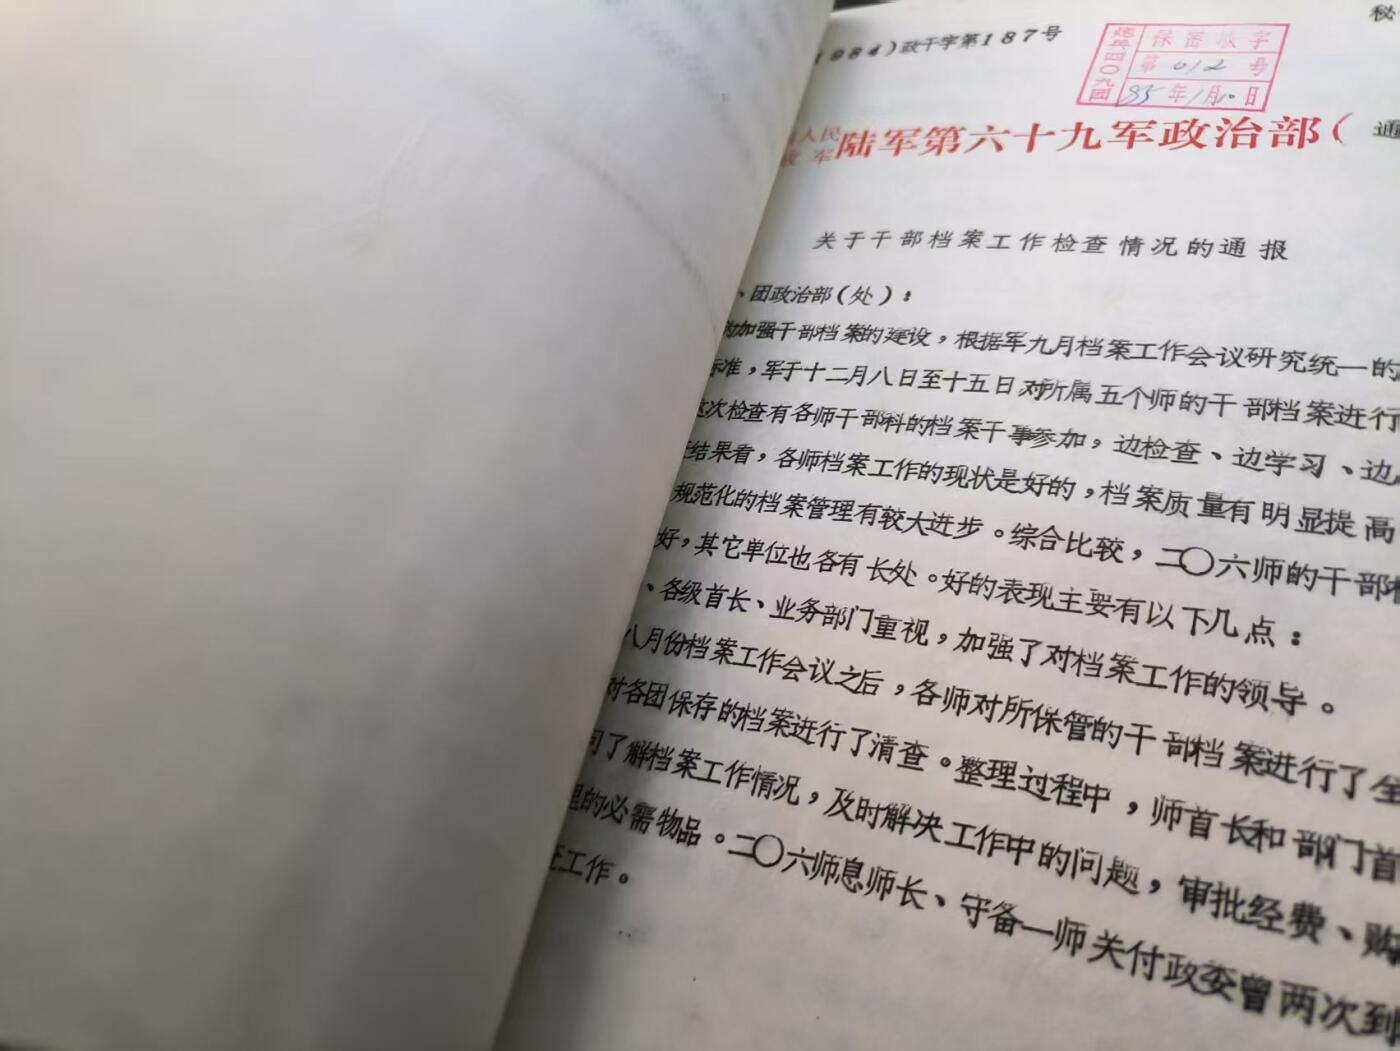 秘
1984)政干字第187号
炮兵四〇九团
保密收字
第012号
85年1月10日
人民
军
陆军第六十九军政治部(通
关于干部档案工作检查情况的通报
、团政治部(处):
为加强干部档案的建设,根据军九月档案工作会议研究统一的
标准,军于十二月八日至十五日对所属五个师的干部档案进行
这次检查有各师干部科的档案干事参加,边检查、边学习、边
结果看,各师档案工作的现状是好的,档案质量有明显提高
规范化的档案管理有较大进步。综合比较,二〇六师的干部
好,其它单位也各有长处。好的表现主要有以下几点:
、各级首长、业务部门重视,加强了对档案工作的领导。
八月份档案工作会议之后,各师对所保管的干部档案进行了全
对各团保存的档案进行了清查。整理过程中,师首长和部门首
问了解档案工作情况,及时解决工作中的问题,审批经费、购
理的必需物品。二〇六师息师长、守备一师关付政委曾两次到
工作。